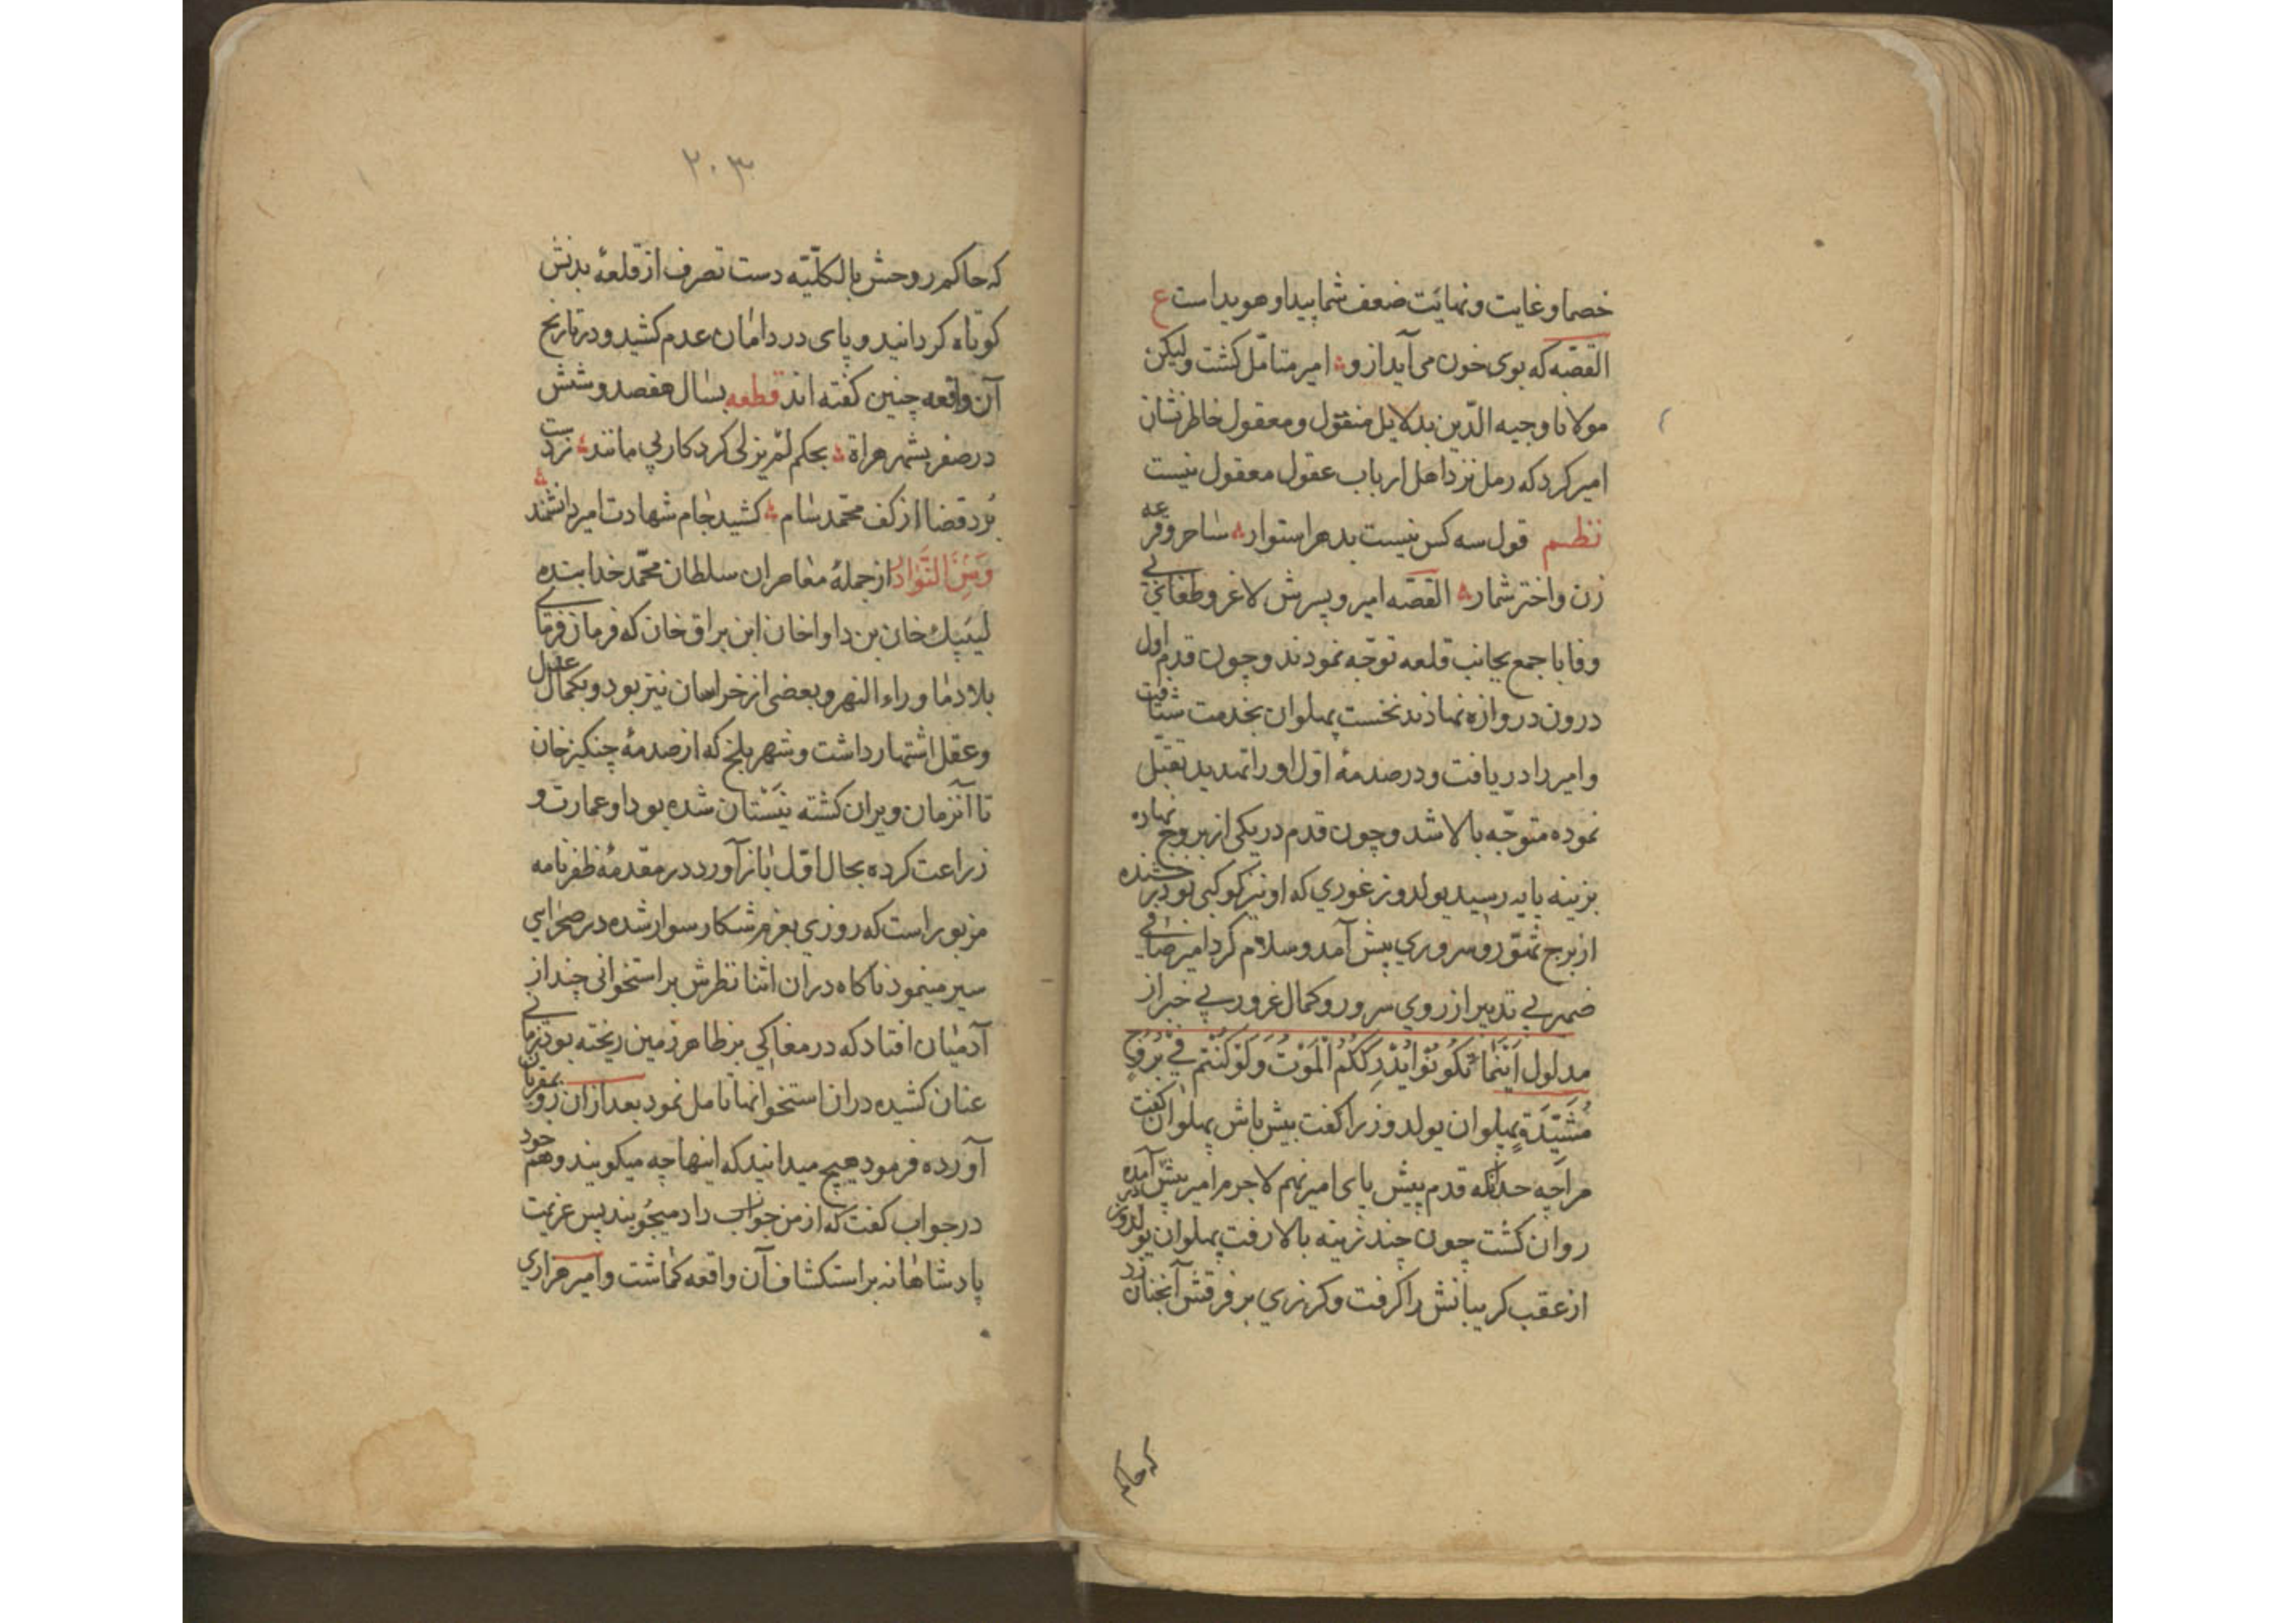 خصما و غایت و نهایت ضعف شما پیدا و هویداست ع
القصّه که بوی خون می آید ازو امیر متامّل کشت ولیکن
مولانا وجیه الدّین بدلایل منقول و معقول خاطر نشان
امیر کرد که رمل نزد اهل ارباب عقول معقول نیست
نظم قول سه کس نیست بدهر استوار ساحر و قرعه
زن و اختر شمار القصّه امیر و پسرش لاغر و طغای بی
وفا با جمع بجانب قلعه توجّه نمودند و چون قدم اول
درون دروازه نهادند نخست پهلوان بخدمت شتافت
و امیر را دریافت و در صدمهٔ اوّل او را تهدید بقتل
نموده متوجّه بالا شد و چون قدم در یکی از بروج نهاده
بزینه پایه رسید یولدوز غوری که او نیز کوکبی بود درخشنده
از برج تهوّر و سروری پیش آمد و سلام کرد امیر صافی
ضمیر بی تدبیر از روی سرور و کمال غرور بی خبر از
مدلول اَیْنَمَا تَکُونُوْا یُدْرِکْکُمُ الْمَوْتُ وَلَوْ کُنْتُمْ فِی بُرُوجٍ
مُشَیَّدَةٍ پهلوان یولدوز را کفت پیش باش پهلوان کفت
مرا چه حدانکه قدم پیش پای امیر نهم لاجرم امیر پیش آمده
روان کشت چون چند زینه بالا رفت پهلوان یولدوز در
از عقب کریبانش را کرفت و کرزی بر فرقش آنچنان زد
که حاکم
۲۰۳
که حاکم روحش بالکلّیّه دست تصرف از قلعهٔ بدنش
کوتاه کردانید و پای در دامان عدم کشید و در تاریخ
آن واقعه چنین کفته اند قطعه بسال هفصد و شش
در صفر بشهر هراة بحکم لم یزلی کرد کار بی مانند ز دست
برد قضا از کف محمّد سام کشید جام شهادت امیر دانشمند
وَمِنَ النَّوَادِر از جملهٔ معاصران سلطان محمّد خدابنده
کپک خان بن داواخان ابن براق خان که فرمان فرمای
بلاد ما وراء النهر و بعضی از خراسان نیز بود و بکمال عدل
و عقل اشتهار داشت و شهر بلخ که از صدمهٔ چنکیز خان
تا آنزمان ویران کشته نیَسْتان شده بود او عمارت و
زراعت کرده بحال اوّل باز آورد در مقدمهٔ ظفرنامه
مزبور است که روزی بعزم شکار سوار شده در صحرایی
سیر مینمود ناکاه در ان اثنا نظرش بر استخوانی چند از
آدمیان افتاد که در مغاکی بر ظاهر زمین ریخته بود زمانی
عنان کشیده در ان استخوانها تامل نمود بعد ازان رو بمقربان
آورده فرمود هیچ میدانید که اینها چه میکویند و هم خود
در جواب کفت که از من جواب داد میجُویند پس عزیمت
پادشاهانه بر استکشاف آن واقعه کماشت و امیر هزاری